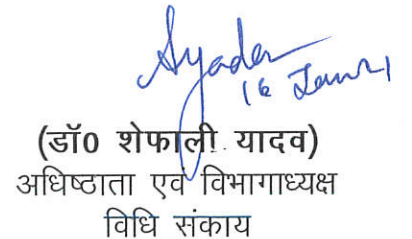 Syadav
16 Jan 21
(डॉ0 शेफाली यादव)
अधिष्ठाता एवं विभागाध्यक्ष
विधि संकाय